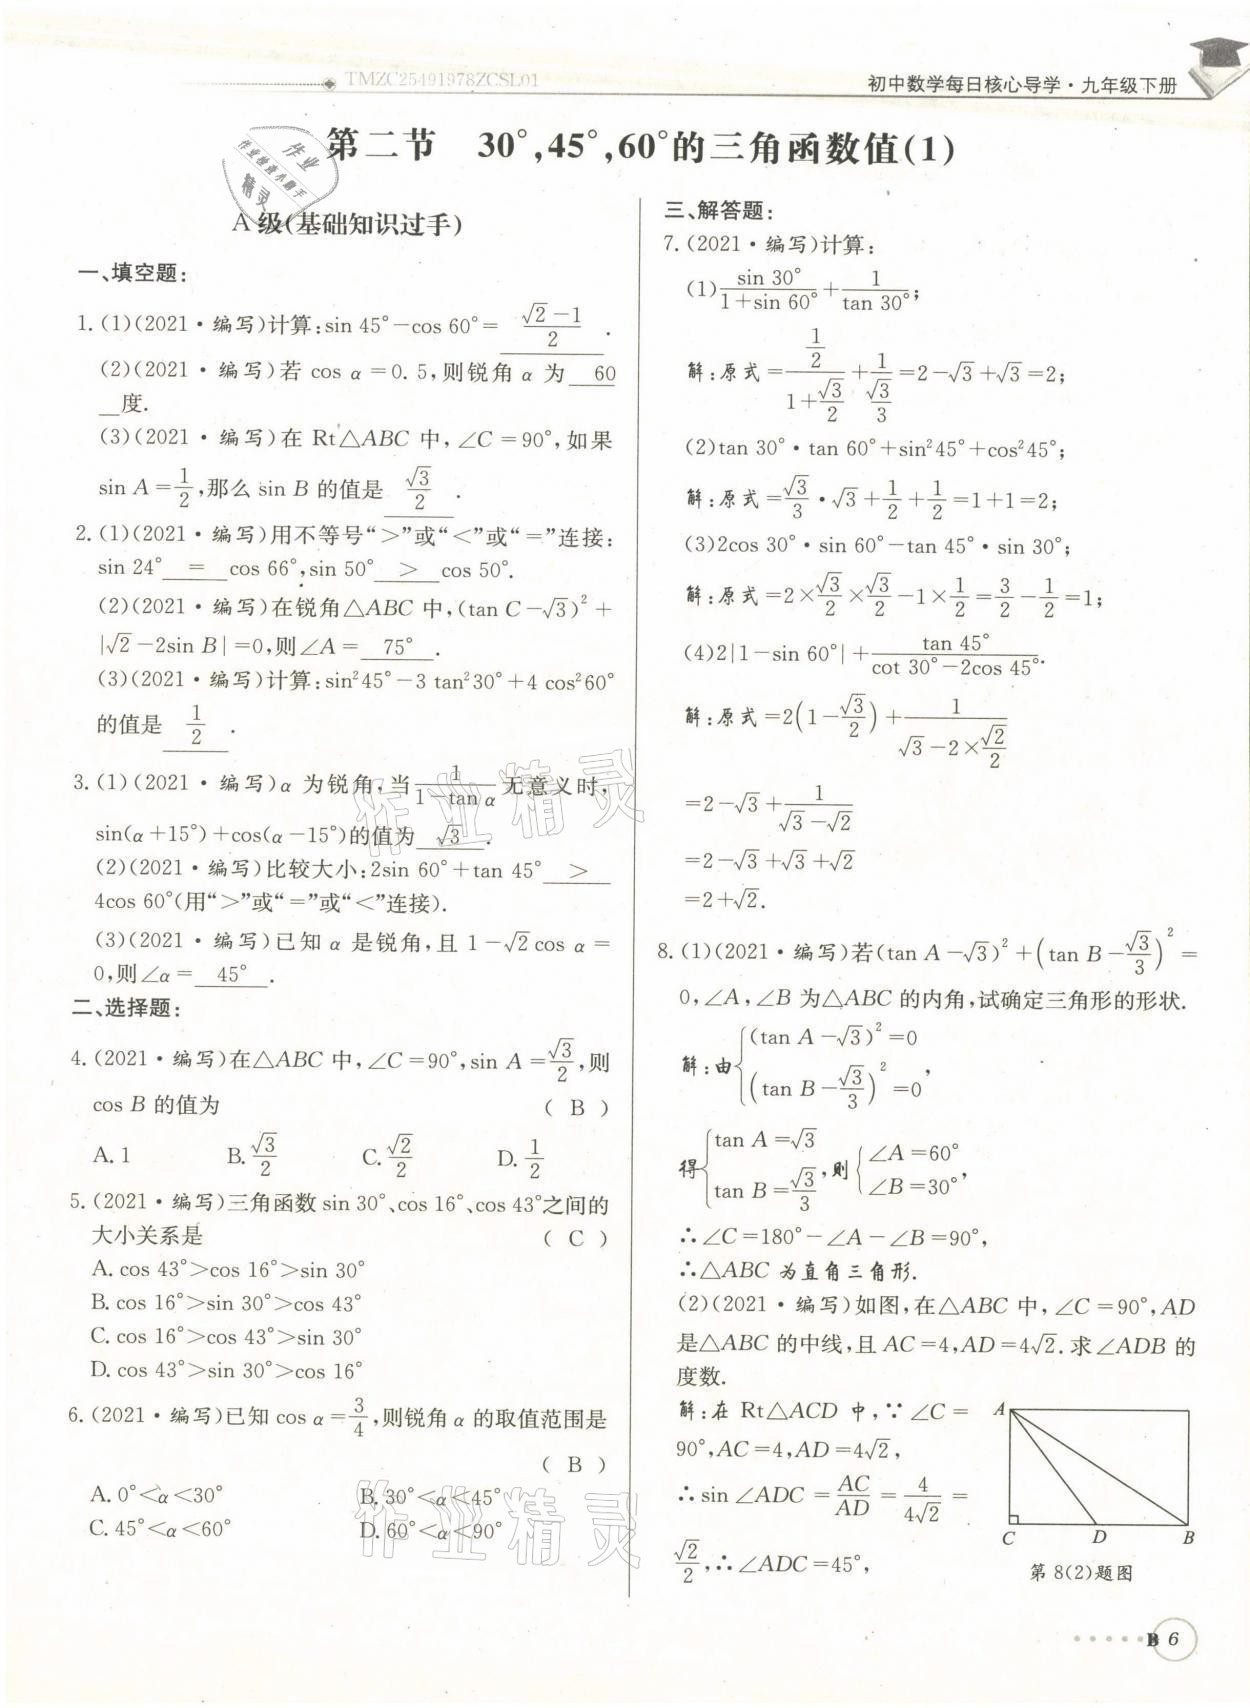 TMZC25491978ZCSL01
初中数学每日核心导学·九年级下册
第二节 30°,45°,60°的三角函数值(1)
A级(基础知识过手)
一、填空题:
1.(1)(2021·编写)计算:sin 45°-cos 60°= (√2-1)/2 .
(2)(2021·编写)若 cos α=0.5,则锐角 α 为 60
度.
(3)(2021·编写)在 Rt△ABC 中,∠C=90°,如果
sin A=1/2,那么 sin B 的值是 √3/2 .
2.(1)(2021·编写)用不等号“>”或“<”或“=”连接:
sin 24° = cos 66°,sin 50° > cos 50°.
(2)(2021·编写)在锐角△ABC 中,(tan C-√3)²+
|√2-2sin B|=0,则∠A= 75° .
(3)(2021·编写)计算:sin²45°-3 tan²30°+4 cos²60°
的值是 1/2 .
3.(1)(2021·编写)α 为锐角,当 1/(1-tan α) 无意义时,
sin(α+15°)+cos(α-15°)的值为 √3 .
(2)(2021·编写)比较大小:2sin 60°+tan 45° >
4cos 60°(用“>”或“=”或“<”连接).
(3)(2021·编写)已知 α 是锐角,且 1-√2cos α=
0,则∠α= 45° .
二、选择题:
4.(2021·编写)在△ABC 中,∠C=90°,sin A=√3/2,则
cos B 的值为 ( B )
A.1 B.√3/2 C.√2/2 D.1/2
5.(2021·编写)三角函数 sin 30°、cos 16°、cos 43°之间的
大小关系是 ( C )
A.cos 43°>cos 16°>sin 30°
B.cos 16°>sin 30°>cos 43°
C.cos 16°>cos 43°>sin 30°
D.cos 43°>sin 30°>cos 16°
6.(2021·编写)已知 cos α=3/4,则锐角 α 的取值范围是
( B )
A.0°<α<30° B.30°<α<45°
C.45°<α<60° D.60°<α<90°
三、解答题:
7.(2021·编写)计算:
(1)sin 30°/(1+sin 60°)+1/tan 30°;
解:原式=(1/2)/(1+√3/2)+1/(√3/3)=2-√3+√3=2;
(2)tan 30°·tan 60°+sin²45°+cos²45°;
解:原式=√3/3·√3+1/2+1/2=1+1=2;
(3)2cos 30°·sin 60°-tan 45°·sin 30°;
解:原式=2×√3/2×√3/2-1×1/2=3/2-1/2=1;
(4)2|1-sin 60°|+tan 45°/(cot 30°-2cos 45°).
解:原式=2(1-√3/2)+1/(√3-2×√2/2)
=2-√3+1/(√3-√2)
=2-√3+√3+√2
=2+√2.
8.(1)(2021·编写)若(tan A-√3)²+(tan B-√3/3)²=
0,∠A,∠B 为△ABC 的内角,试确定三角形的形状.
解:由{(tan A-√3)²=0
(tan B-√3/3)²=0,
得{tan A=√3
tan B=√3/3,则{∠A=60°
∠B=30°,
∴∠C=180°-∠A-∠B=90°,
∴△ABC 为直角三角形.
(2)(2021·编写)如图,在△ABC 中,∠C=90°,AD
是△ABC 的中线,且 AC=4,AD=4√2.求∠ADB 的
度数.
解:在 Rt△ACD 中,∵∠C=
90°,AC=4,AD=4√2,
∴sin ∠ADC=AC/AD=4/(4√2)=
√2/2,∴∠ADC=45°,
A
C D B
第 8(2)题图
B 6
作业
作业检查小助手
精灵
作业精灵
作业精灵